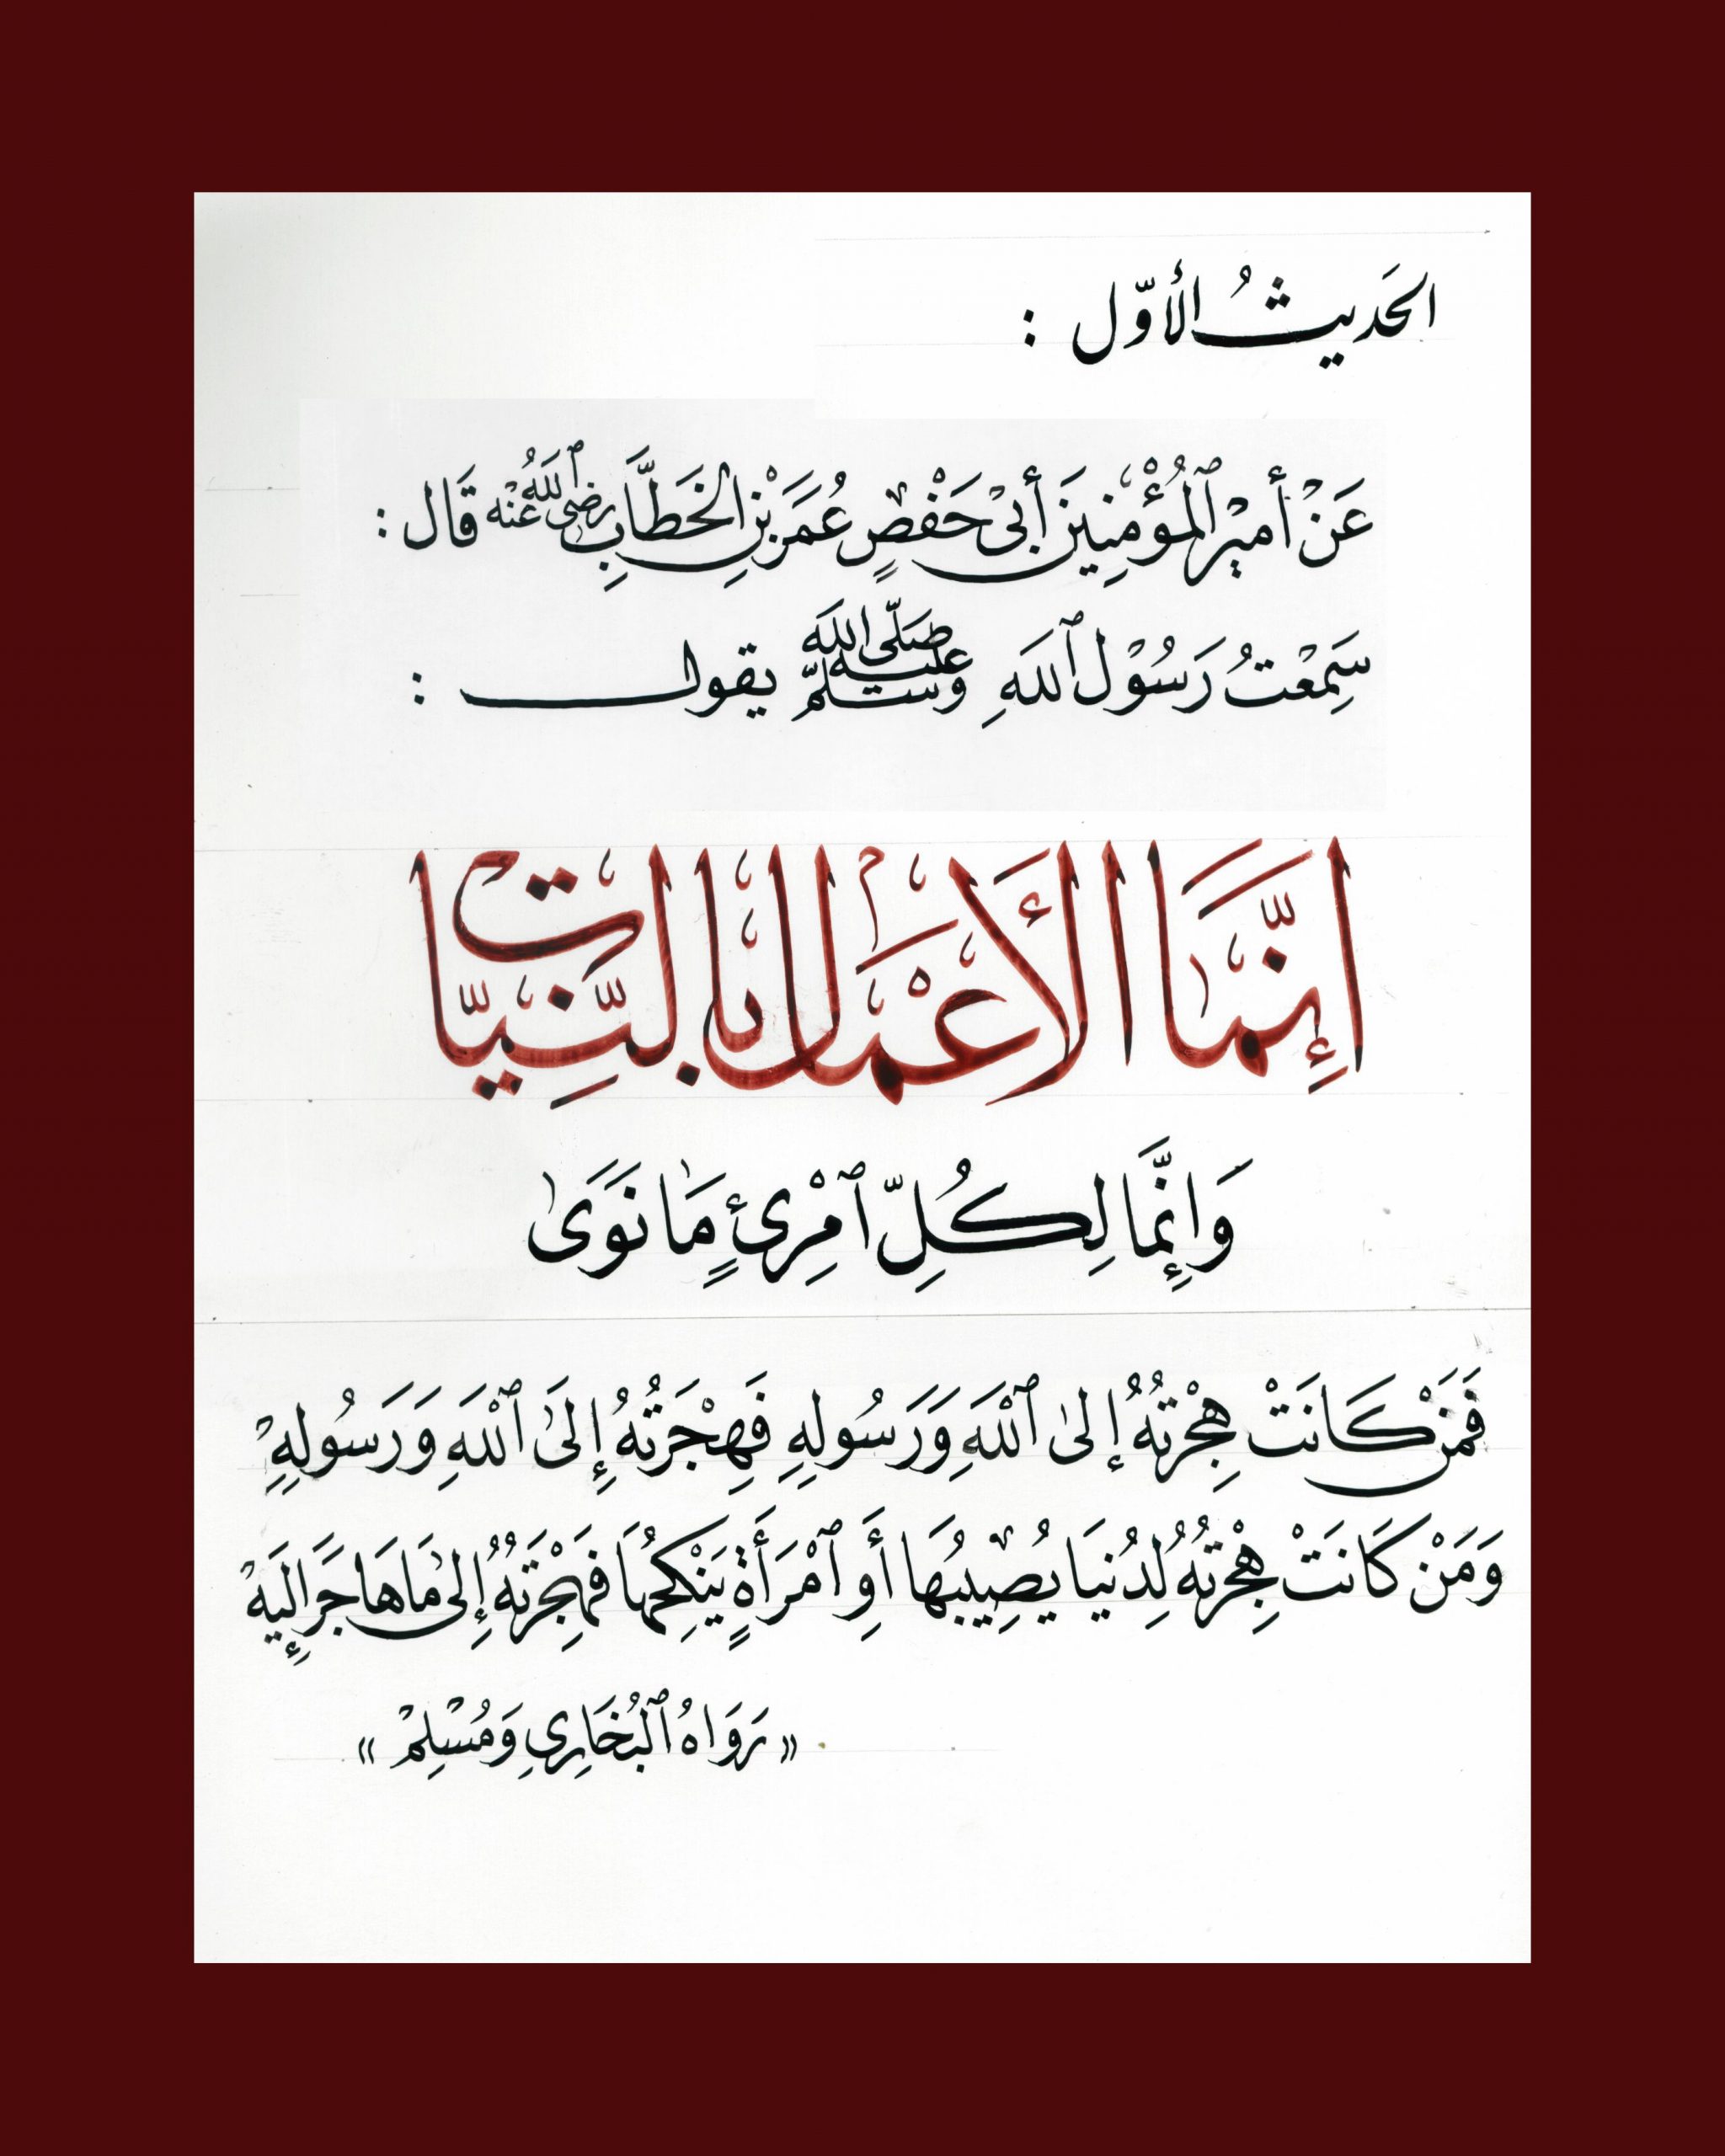 الحَدِيثُ الأوّل :
عَنْ أَمِيْرِ ٱلْمُؤْمِنِينَ أَبِىْ حَفْصٍ عُمَرَ بْنِ الخَطَّابِ رَضِىَ ٱللهُ عَنْه قَال :
سَمِعْتُ رَسُوْل ٱللهِ صَلَّى اللهُ عَلَيْهِ وَسَلَّمَ يقول :
إِنَّمَا الأَعْمَالُ بِالنِّيَّاتِ
وَإِنَّمَا لِكُلِّ ٱمْرِئٍ مَا نَوَىٰ
فَمَنْ كَانَتْ هِجْرَتُهُ إِلىٰ ٱللهِ وَرَسُولِهِ فَهِجْرَتُهُ إِلَىٰ ٱللهِ وَرَسُولِهِ
وَمَنْ كَانَتْ هِجْرَتُهُ لِدُنيَا يُصِيبُهَا أَوِ ٱمْرَأَةٍ يَنْكِحُهَا فَهِجْرَتُهُ إِلىٰ مَا هَاجَرَ إِلَيْهِ
« رَوَاهُ ٱلْبُخَارِي وَمُسْلِمْ »